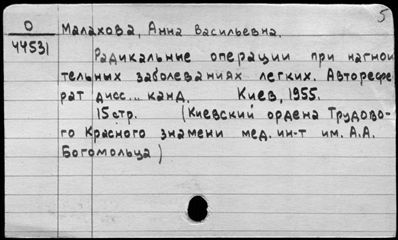 5
О
44531
Малахова, Анна Васильевна.
Радикальные операции при нагнои
тельных заболеваниях легких. Авторефе
рат дисс... канд. Киев, 1955.
15 стр. (Киевский ордена Трудово-
го Красного знамени мед. ин-т им. А.А.
Богомольца)